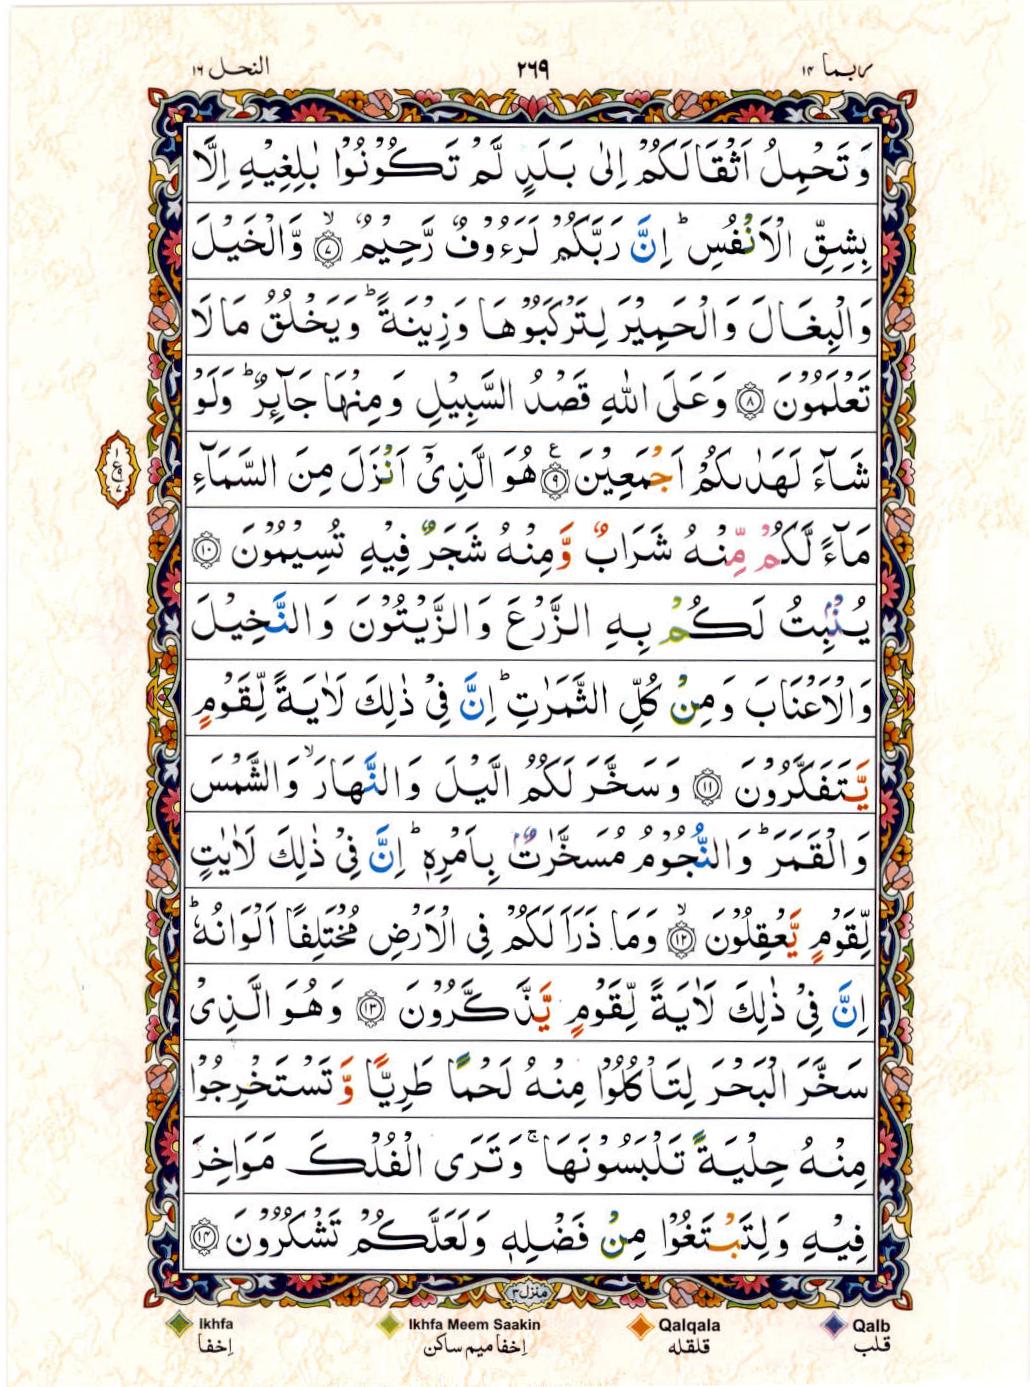 ربما ١٤
٢٦٩
النحل ١٦
وَتَحْمِلُ اَثْقَالَكُمْ اِلٰى بَلَدٍ لَّمْ تَكُوْنُوْا بٰلِغِيْهِ اِلَّا
بِشِقِّ الْاَنْفُسِ ؕ اِنَّ رَبَّكُمْ لَرَءُوْفٌ رَّحِيْمٌ ۙ﴿٧﴾ وَّالْخَيْلَ
وَالْبِغَالَ وَالْحَمِيْرَ لِتَرْكَبُوْهَا وَزِيْنَةً ؕ وَيَخْلُقُ مَا لَا
تَعْلَمُوْنَ ﴿٨﴾ وَعَلَى اللّٰهِ قَصْدُ السَّبِيْلِ وَمِنْهَا جَآئِرٌ ؕ وَلَوْ
شَآءَ لَهَدٰىكُمْ اَجْمَعِيْنَ ﴿٩﴾ ع هُوَ الَّذِیْۤ اَنْزَلَ مِنَ السَّمَآءِ
مَآءً لَّكُمْ مِّنْهُ شَرَابٌ وَّمِنْهُ شَجَرٌ فِيْهِ تُسِيْمُوْنَ ﴿١٠﴾
يُنْۢبِتُ لَكُمْ بِهِ الزَّرْعَ وَالزَّيْتُوْنَ وَالنَّخِيْلَ
وَالْاَعْنَابَ وَمِنْ كُلِّ الثَّمَرٰتِ ؕ اِنَّ فِیْ ذٰلِكَ لَاٰيَةً لِّقَوْمٍ
يَّتَفَكَّرُوْنَ ﴿١١﴾ وَسَخَّرَ لَكُمُ الَّيْلَ وَالنَّهَارَ ۙ وَالشَّمْسَ
وَالْقَمَرَ ؕ وَالنُّجُوْمُ مُسَخَّرٰتٌۢ بِاَمْرِهٖ ؕ اِنَّ فِیْ ذٰلِكَ لَاٰيٰتٍ
لِّقَوْمٍ يَّعْقِلُوْنَ ۙ﴿١٢﴾ وَمَا ذَرَاَ لَكُمْ فِی الْاَرْضِ مُخْتَلِفًا اَلْوَانُهٗ ؕ
اِنَّ فِیْ ذٰلِكَ لَاٰيَةً لِّقَوْمٍ يَّذَّكَّرُوْنَ ﴿١٣﴾ وَهُوَ الَّذِیْ
سَخَّرَ الْبَحْرَ لِتَاْكُلُوْا مِنْهُ لَحْمًا طَرِيًّا وَّتَسْتَخْرِجُوْا
مِنْهُ حِلْيَةً تَلْبَسُوْنَهَا ۚ وَتَرَى الْفُلْكَ مَوَاخِرَ
فِيْهِ وَلِتَبْتَغُوْا مِنْ فَضْلِهٖ وَلَعَلَّكُمْ تَشْكُرُوْنَ ﴿١٤﴾
منزل ٣
Ikhfa Ikhfa Meem Saakin Qalqala Qalb
إخفا إخفا ميم ساكن قلقله قلب